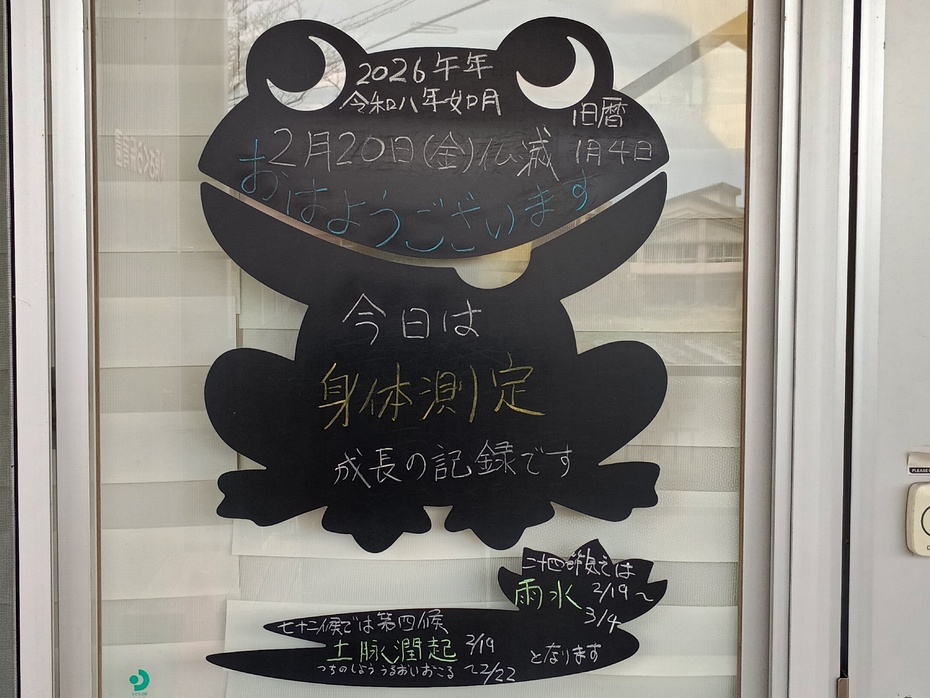 2026午年
令和八年如月
旧暦
2月20日(金)仏滅 1月4日
おはようございます
今日は
身体測定
成長の記録です
二十四節気では
雨水 2/19~
3/4
七十二候では第四候
土脉潤起 2/19
つちのしょう うるおいおこる ~2/22
となります